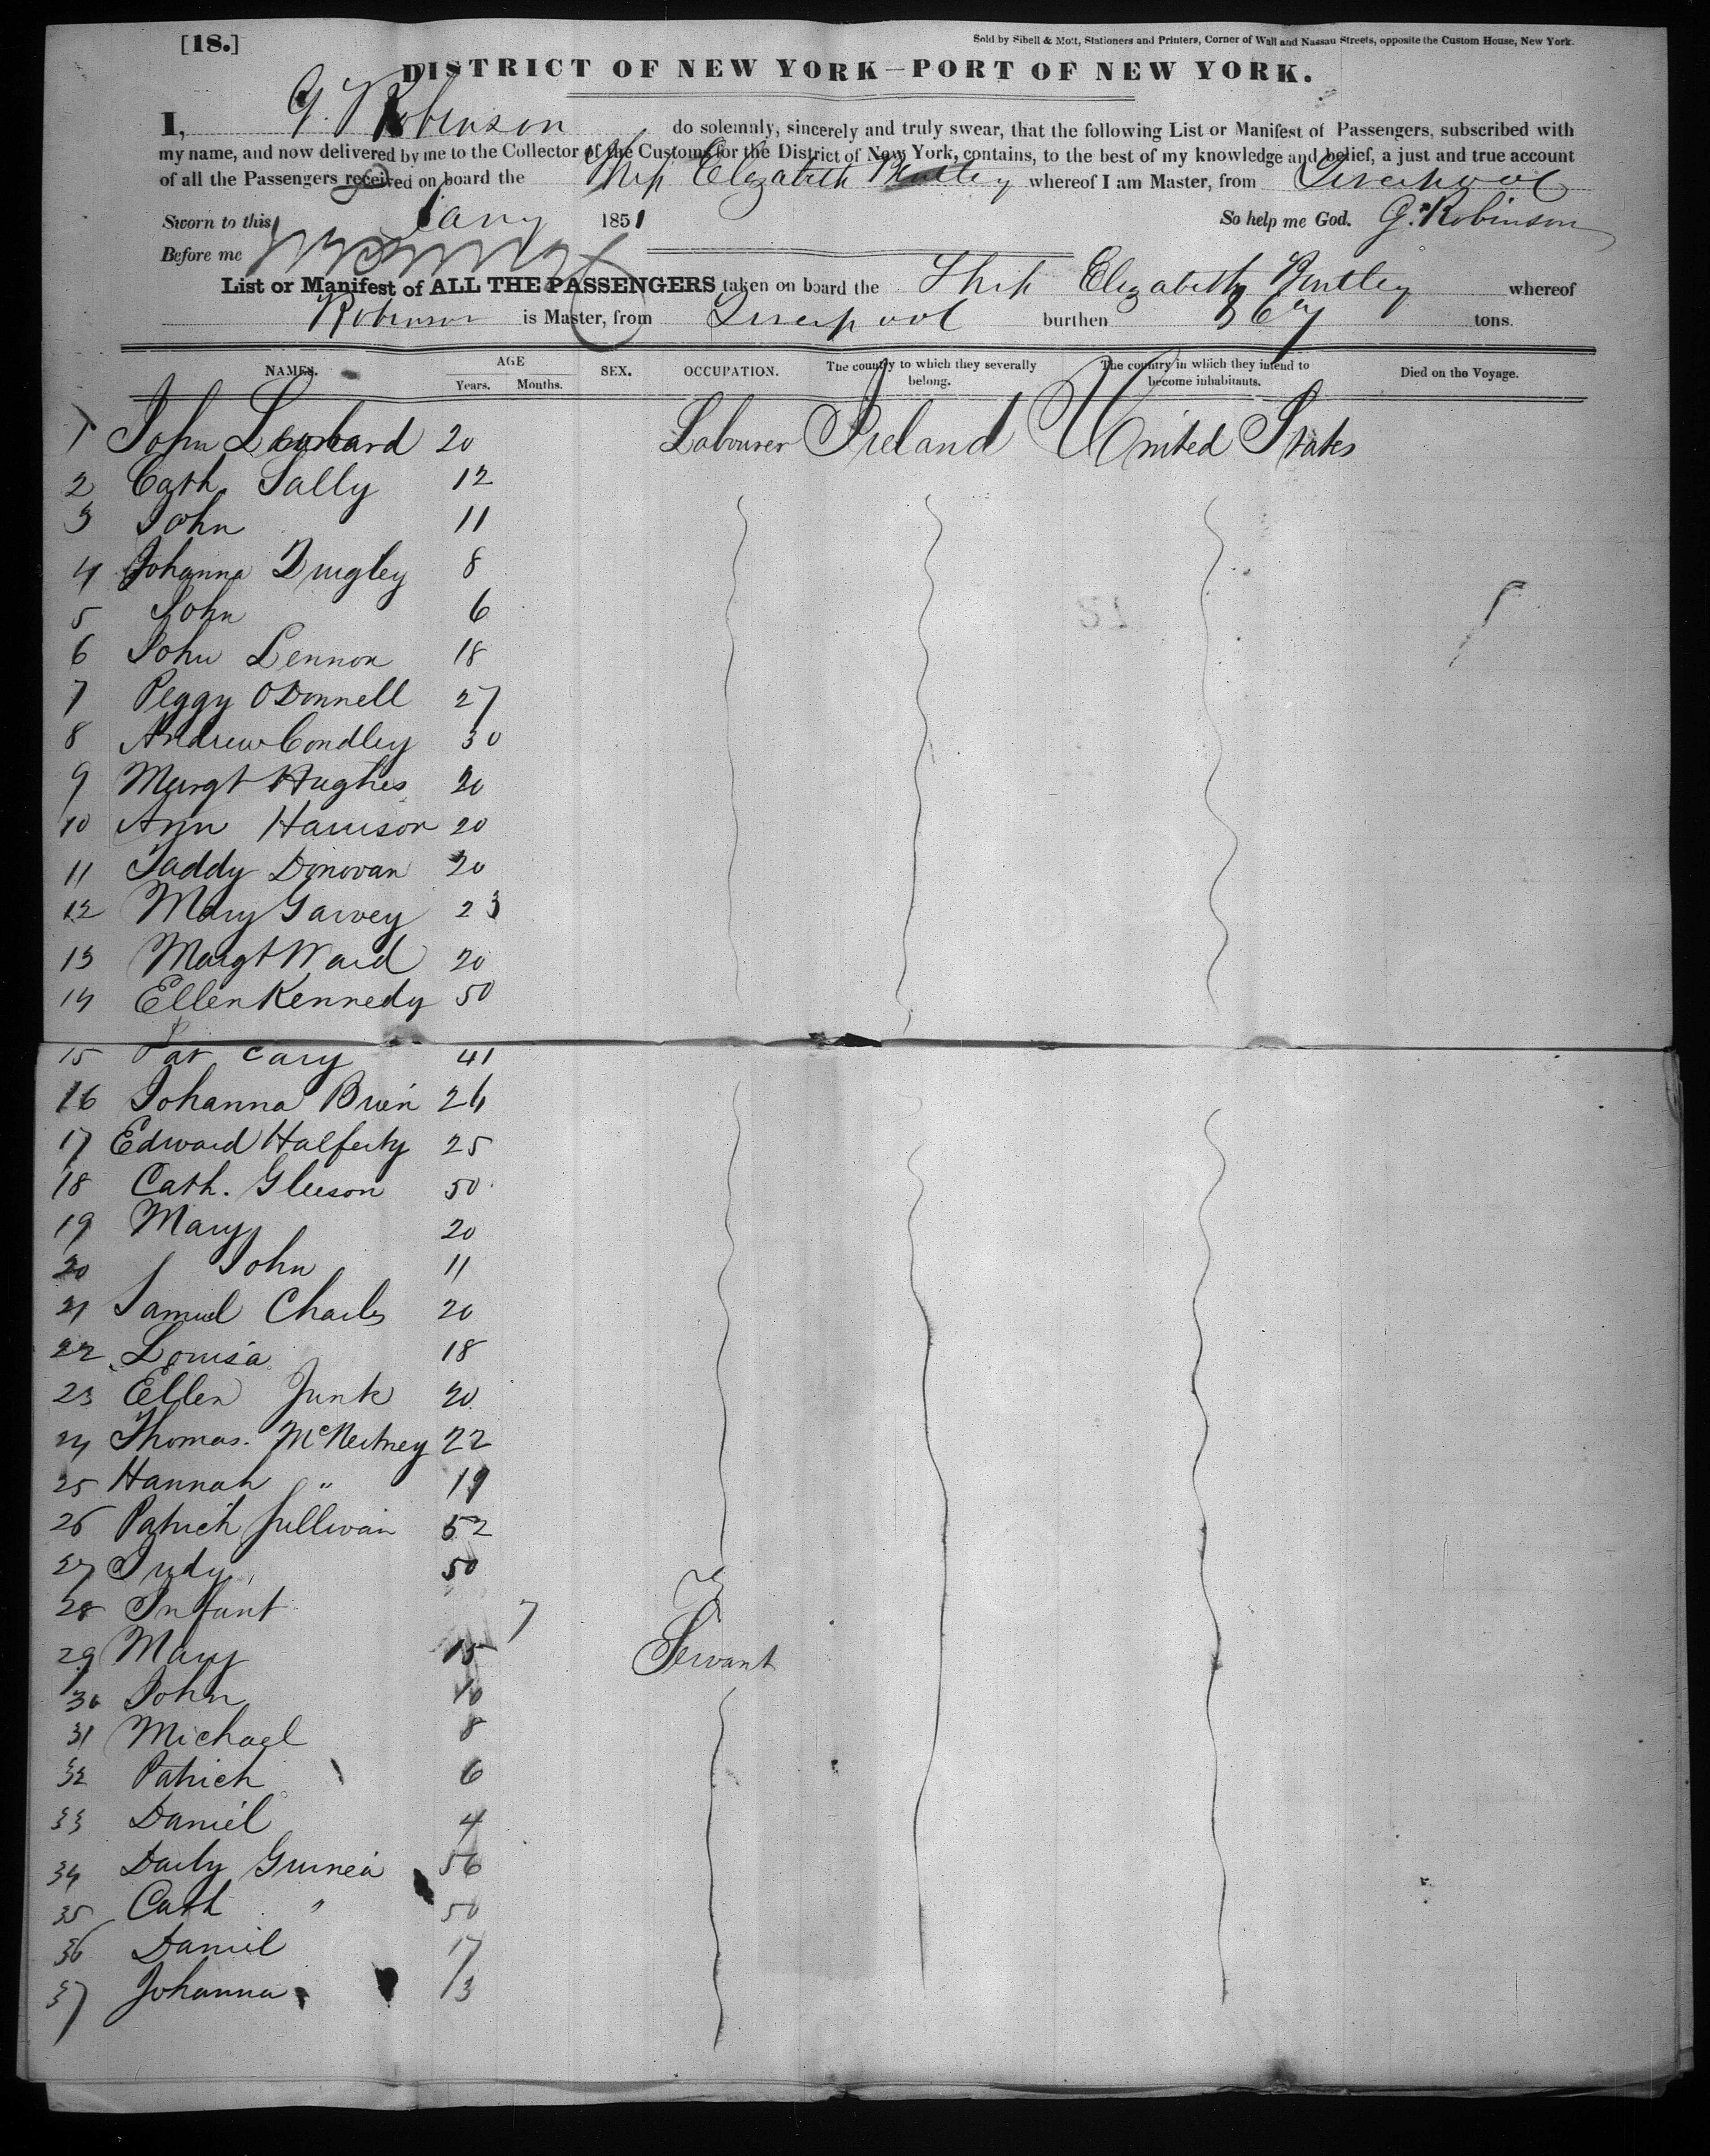 [18.]
Sold by Sibell & Mott, Stationers and Printers, Corner of Wall and Nassau Streets, opposite the Custom House, New York.
DISTRICT OF NEW YORK—PORT OF NEW YORK.
I, G. Robinson do solemnly, sincerely and truly swear, that the following List or Manifest of Passengers, subscribed with
my name, and now delivered by me to the Collector of the Customs for the District of New York, contains, to the best of my knowledge and belief, a just and true account
of all the Passengers received on board the Ship Elizabeth Bentley whereof I am Master, from Liverpool
Sworn to this Jany 1851 So help me God. G. Robinson
Before me
List or Manifest of ALL THE PASSENGERS taken on board the Ship Elizabeth Bentley whereof
Robinson is Master, from Liverpool burthen tons.
NAMES. AGE Years. Months. SEX. OCCUPATION. The country to which they severally belong. The country in which they intend to become inhabitants. Died on the Voyage.
1 John 20 Labourer Ireland United States
2 Cath. Sally 12
3 John 11
4 Johanna Quigley 8
5 John 6
6 John Lennon 18
7 Peggy ODonnell 27
8 Andrew Condley 30
9 Margt Hughes 20
10 Ann Harrison 20
11 Taddy Donovan 20
12 Mary Garvey 23
13 Margt Ward 20
14 Ellen Kennedy 50
15 Pat Cary 41
16 Johanna Brien 24
17 Edward Halferty 25
18 Cath. Gleeson 50
19 Mary 20
20 John 11
21 Samuel Charles 20
22 Louisa 18
23 Ellen Junk 20
24 Thomas McNertney 22
25 Hannah " 19
26 Patrick Sullivan 52
27 Judy 50
28 Infant 7
29 Mary 15 Servant
30 John 10
31 Michael 8
32 Patrick 6
33 Daniel 4
34 Darby 56
35 Cath " 50
36 Daniel 17
37 Johanna 13